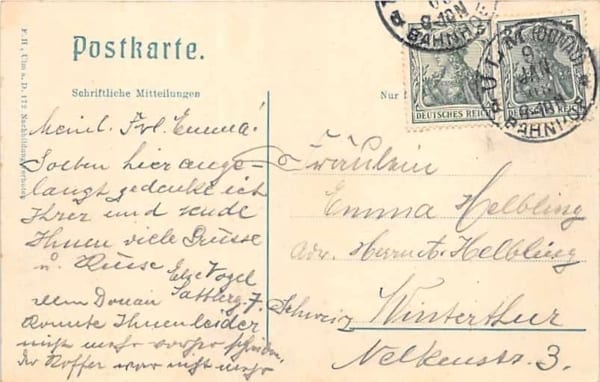 Postkarte.
Schriftliche Mitteilungen
Nur
F. H., Ulm a. D. 172 Nachbildung verboten
DEUTSCHES REICH
DEUTSCHES REICH
ULM (DONAU)
9
JAN
8-10N
BAHNHOF
8-10N
BAHNHOF
Meine Frl. Emma!
Soeben hier ange-
langt gedenke ich
Ihrer und sende
Ihnen viele Grüsse
u. Küsse
Else Vogel
Ulm Donau
Konnte Ihnen leider
nicht mehr
Der Koffer war nicht mehr
Fräulein
Emma Helbling
Adr. Helbling
Schweiz Winterthur
Nelkenstr. 3.